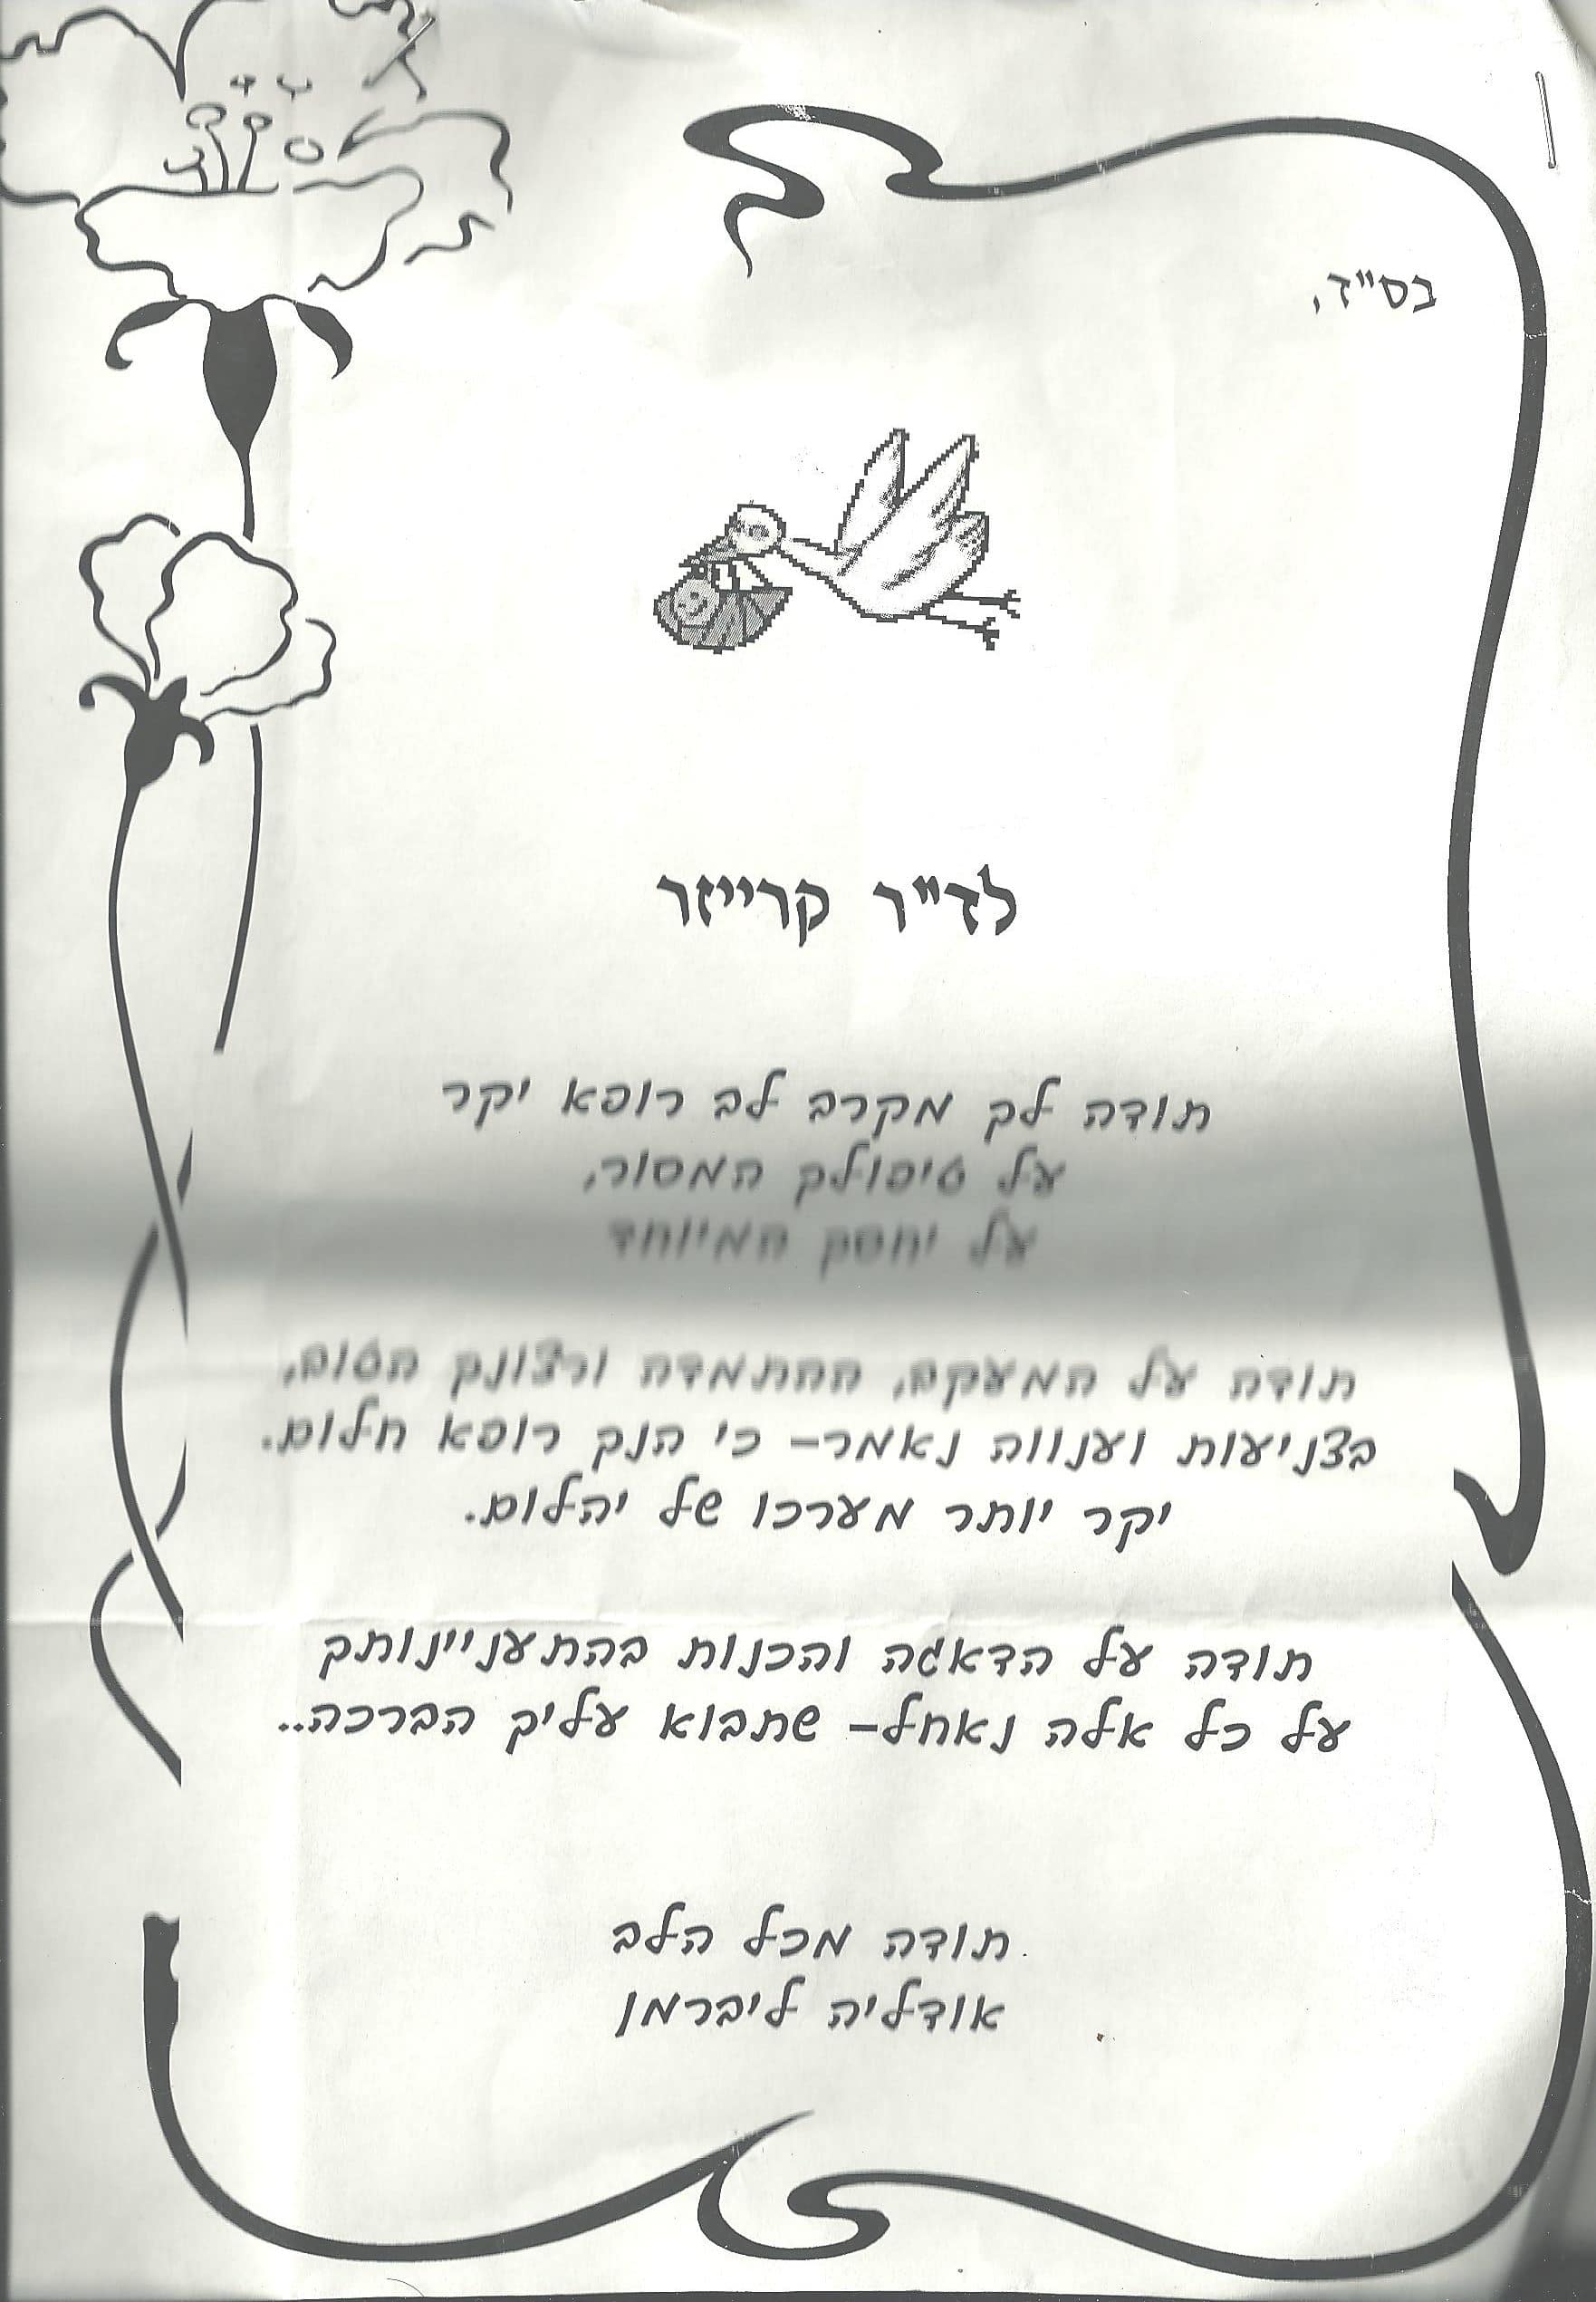 בס"ד,
לד"ר קרייזר
תודה לך מקרב לב רופא יקר
על טיפולך המסור,
על יחסך המיוחד
תודה על המעקב, ההתמדה ורצונך הטוב,
בצניעות וענווה נאמר- כי הנך רופא חלום.
יקר יותר מערכו של יהלום.
תודה על הדאגה והכנות בהתעניינותך
על כל אלה נאחל- שתבוא עליך הברכה..
תודה מכל הלב
אודליה ליברמן